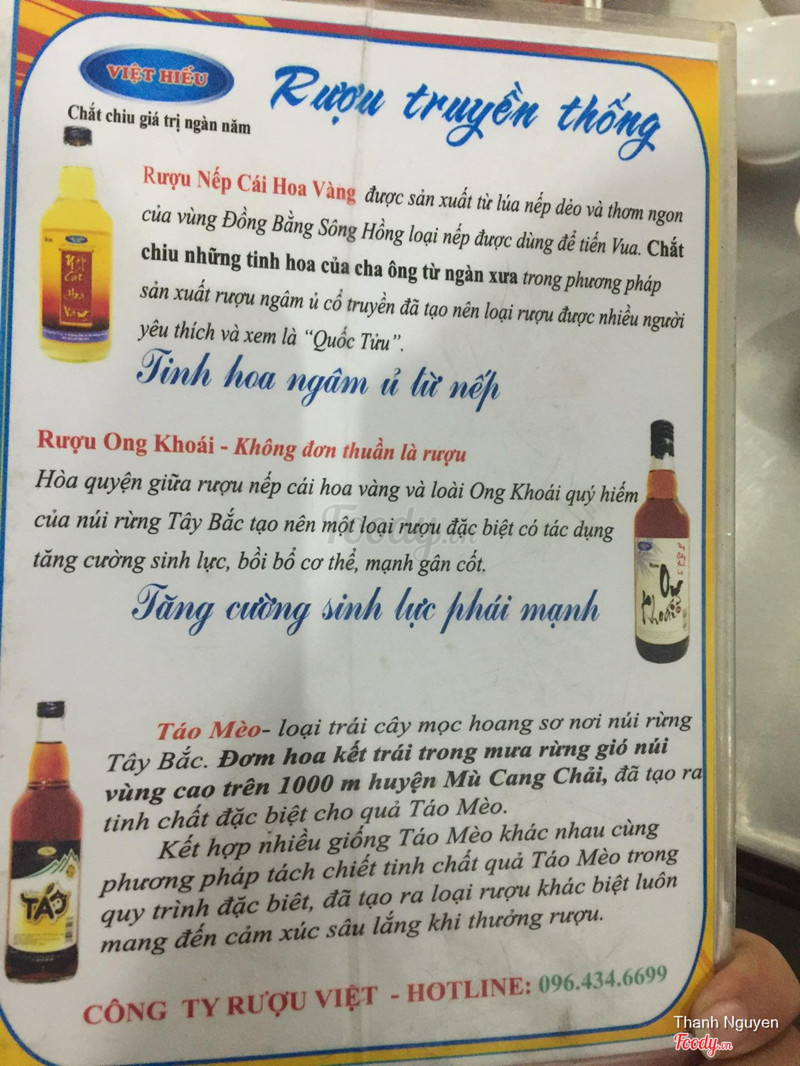 VIỆT HIẾU
Rượu truyền thống
Chắt chiu giá trị ngàn năm
Rượu Nếp Cái Hoa Vàng được sản xuất từ lúa nếp dẻo và thơm ngon
của vùng Đồng Bằng Sông Hồng loại nếp được dùng để tiến Vua. Chắt
chiu những tinh hoa của cha ông từ ngàn xưa trong phương pháp
sản xuất rượu ngâm ủ cổ truyền đã tạo nên loại rượu được nhiều người
yêu thích và xem là “Quốc Tửu”.
Nếp
Cái
Hoa
Vàng
Tinh hoa ngâm ủ từ nếp
Rượu Ong Khoái - Không đơn thuần là rượu
Hòa quyện giữa rượu nếp cái hoa vàng và loài Ong Khoái quý hiếm
của núi rừng Tây Bắc tạo nên một loại rượu đặc biệt có tác dụng
tăng cường sinh lực, bồi bổ cơ thể, mạnh gân cốt.
Tăng cường sinh lực phái mạnh
Ong
Khoái
Táo Mèo- loại trái cây mọc hoang sơ nơi núi rừng
Tây Bắc. Đơm hoa kết trái trong mưa rừng gió núi
vùng cao trên 1000 m huyện Mù Cang Chải, đã tạo ra
tinh chất đặc biệt cho quả Táo Mèo.
Kết hợp nhiều giống Táo Mèo khác nhau cùng
phương pháp tách chiết tinh chất quả Táo Mèo trong
quy trình đặc biêt, đã tạo ra loại rượu khác biệt luôn
mang đến cảm xúc sâu lắng khi thưởng rượu.
TÁO
CÔNG TY RƯỢU VIỆT - HOTLINE: 096.434.6699
Foody.vn
Thanh Nguyen
Foody.vn